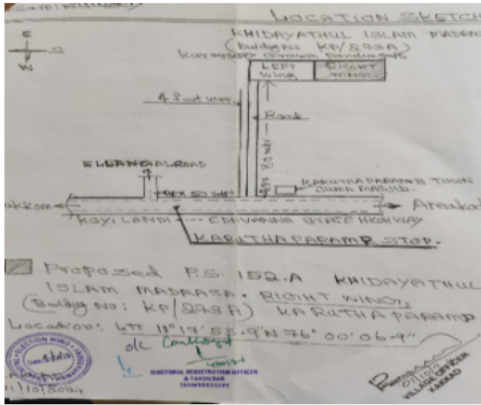 LOCATION SKETCH
KHIDAYATHUL ISLAM MADRASA
(Building no KP/278A)
E
W
LEFT
WING
RIGHT
WING
4 Foot way
Road
80 mtr
ELLANGAL ROAD
50 mtr
KARUTHAPARAMB TOWN
JUMA MASJID
ukkom
Areekod
KOYILANDI - EDAVANNA STATE HIGHWAY
KARUTHAPARAMP STOP.
Proposed P.S. 152.A KHIDAYATHUL
ISLAM MADRASA. RIGHT WING
(Building No: KP/278A) KARUTHAPARAMP
Location: 11° 17' 55.9"N 76° 00' 06.9"
ELECTION WING
ELECTORAL REGISTRATION OFFICER
& TAHSILDAR
THAMARASSERY
VILLAGE OFFICER
KAKKAD